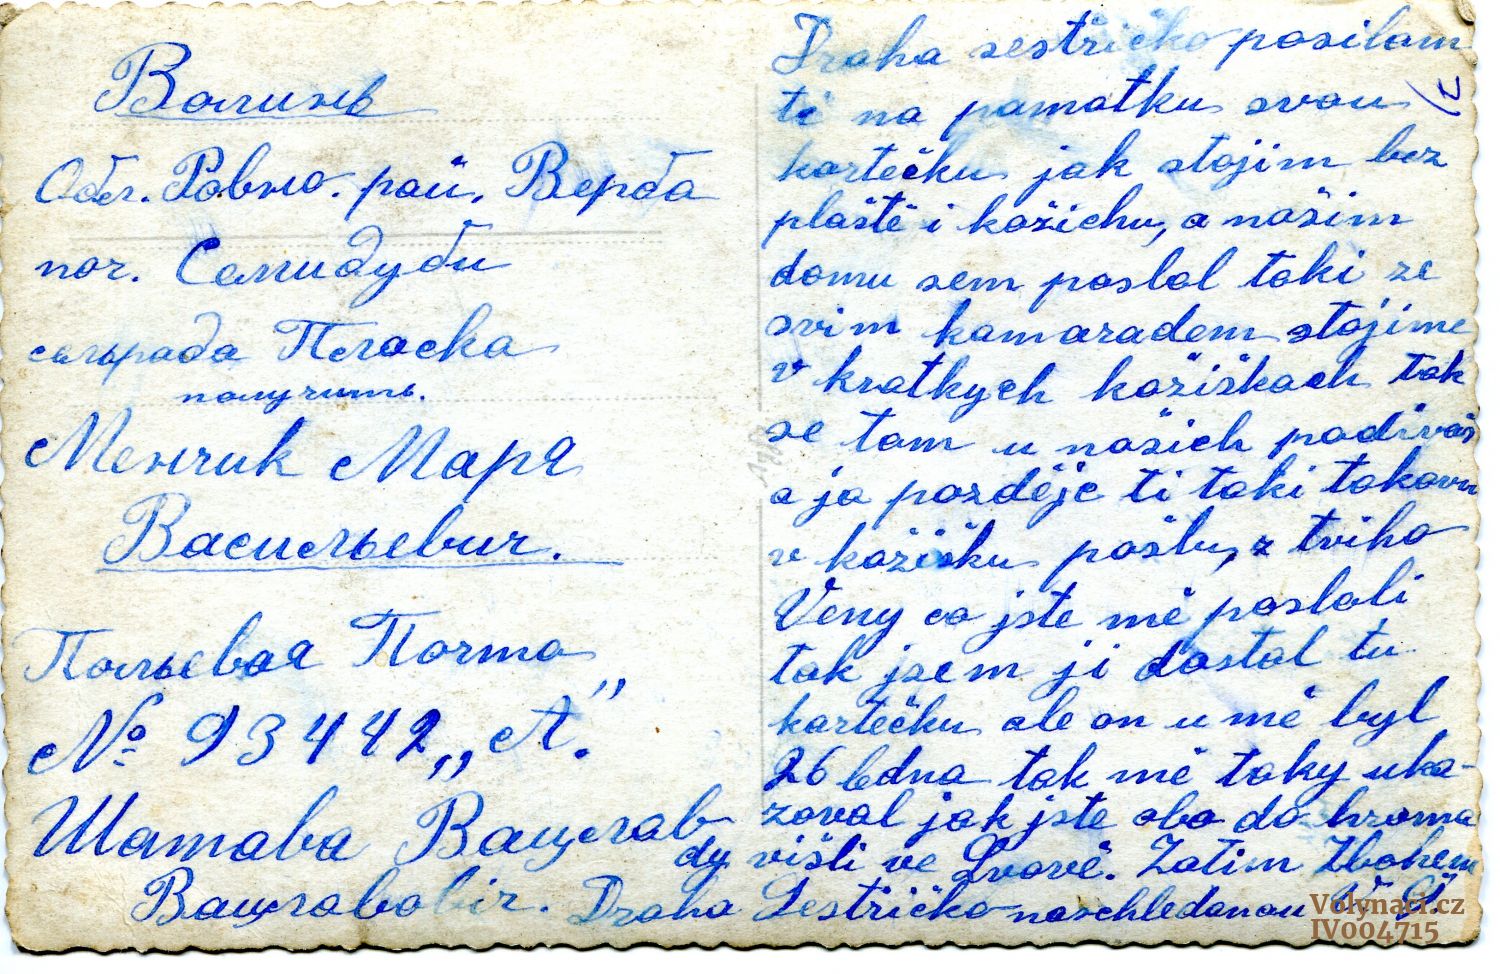 Волинь
Обл. Ровно. рай. Верба
поч. Семидуби
сельрада Пелоска
получить.
Менчик Маря
Васильевич.
Польевая Почта
№ 93442 „А”.
Шатава Вацслав
Вацславовiч.
Draha sestřičko posilam
ti na pamatku svou
kartečku jak stojim bez
plaště i kožichu, a našim
domu sem poslal taki ze
svim kamaradem stojime
v kratkych kožiškach tak
se tam u našich podivaš
a ja pozděje ti taki takovu
v kožišku pošlu, z tviho
Veny co jste mě poslali
tak jsem ji dostal tu
kartečku ale on u mě byl
26 ledna tak mě taky uka-
zoval jak jste oba do hroma
dy višli ve Lvově. Zatim Zbohem
Draha Sestřičko naschledanou V. Š.
Volynaci.cz
IV004715